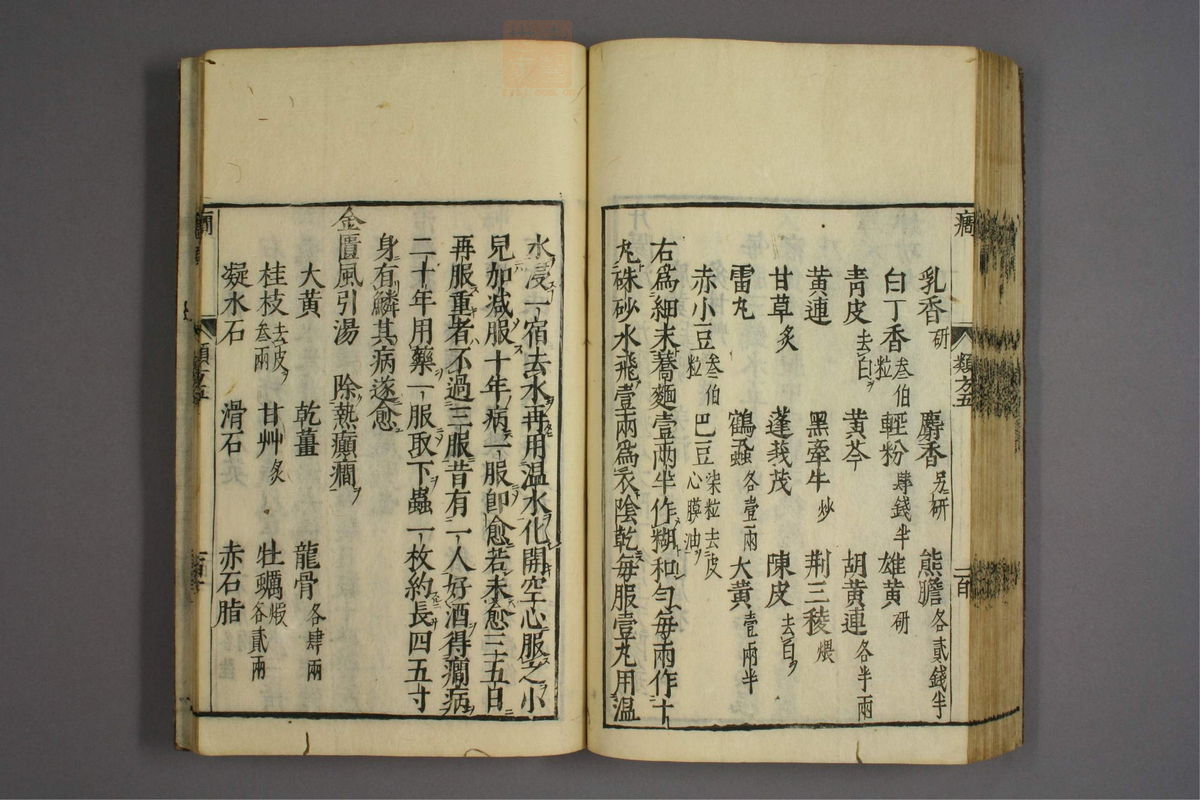 癎
類方五
二百
乳香研 麝香另研 熊膽各貳錢半
白丁香叁伯粒 輕粉肆錢半 雄黃研
靑皮去白ヲ 黄芩 胡黄連各半兩
黄連 黑牽牛炒 荆三稜煨
甘草炙 蓬莪茂 陳皮去白ヲ
雷丸 鶴蝨各壹兩 大黄壹兩半
赤小豆叁伯粒 巴豆柒粒去皮心膜油ヲ
右爲細末蕎麵壹兩半作糊和勻毎兩作十
丸硃砂水飛壹兩爲衣陰乾每服壹丸用温
水浸一宿去水再用温水化開空心服之小
兒加减服十年病一服卽愈若未愈三五日
再服重者不過三服昔有一人好酒得癎病
二十年用藥一服取下蟲一枚約長四五寸
身有鱗其病遂愈
金匱風引湯 除熱癲癎ヲ
大黄 乾薑 龍骨各肆兩
桂枝去皮ヲ叁兩 甘艸炙 牡蠣煆各貳兩
凝水石 滑石 赤石脂